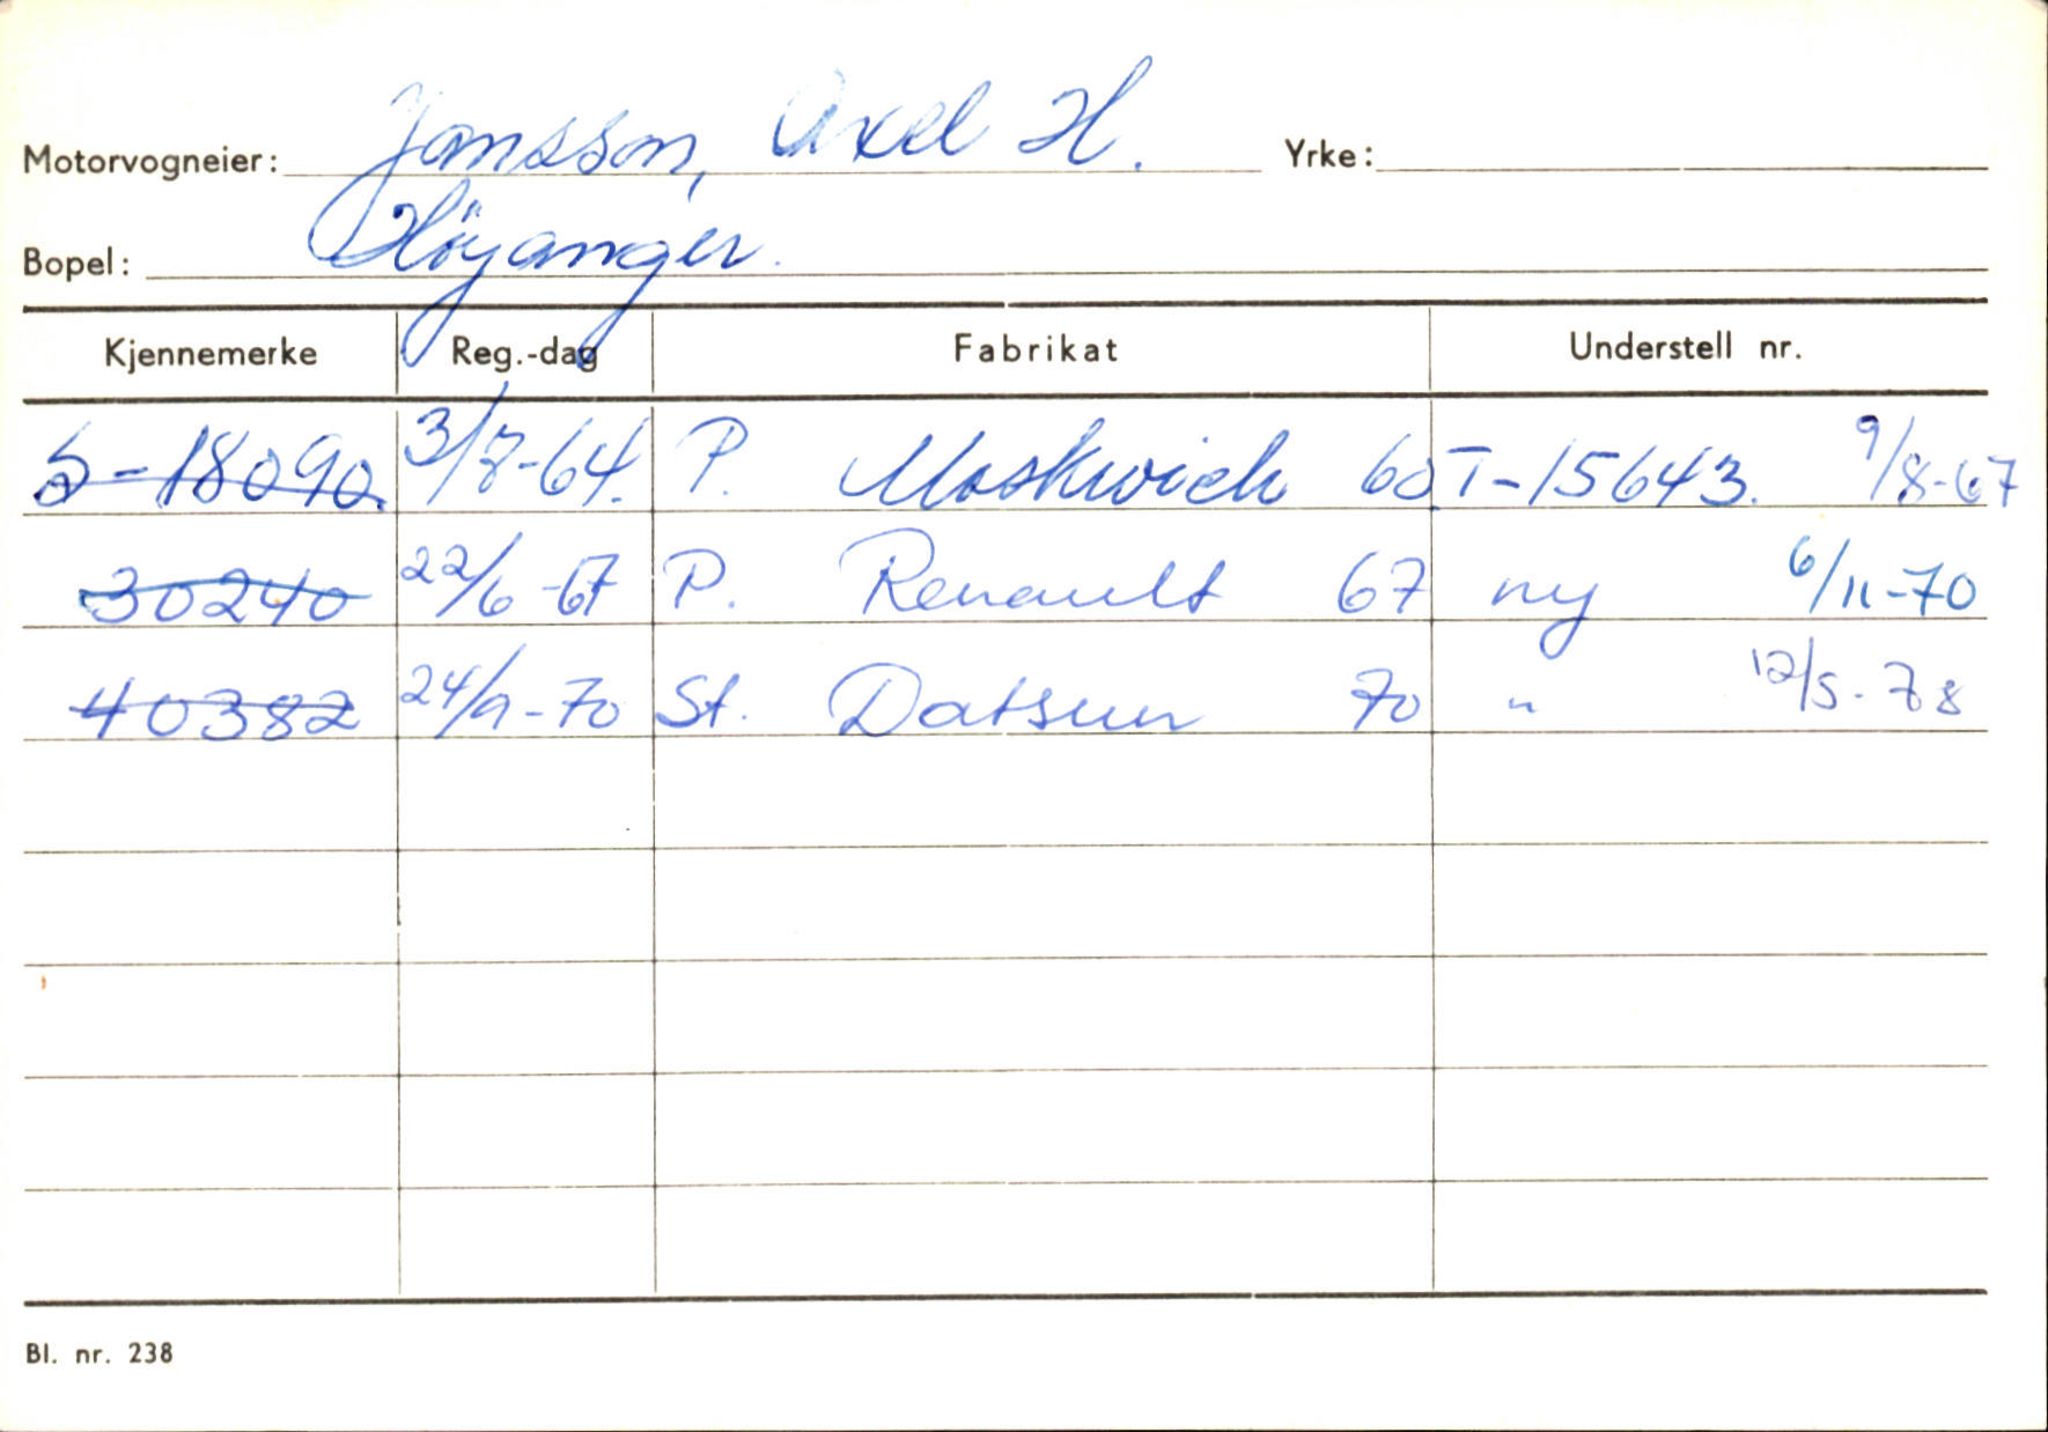 Motorvogneier: Jonsson, Axel H. Yrke:
Bopel: Höyanger.
Kjennemerke Reg.-dag Fabrikat Understell nr.
S-18090. 3/7-64. P. Moskwich 60 T-15643. 9/8-67
30240 22/6-67 P. Renault 67 ny 6/11-70
40382 24/9-70 St. Datsun 70 " 12/5-78
Bl. nr. 238